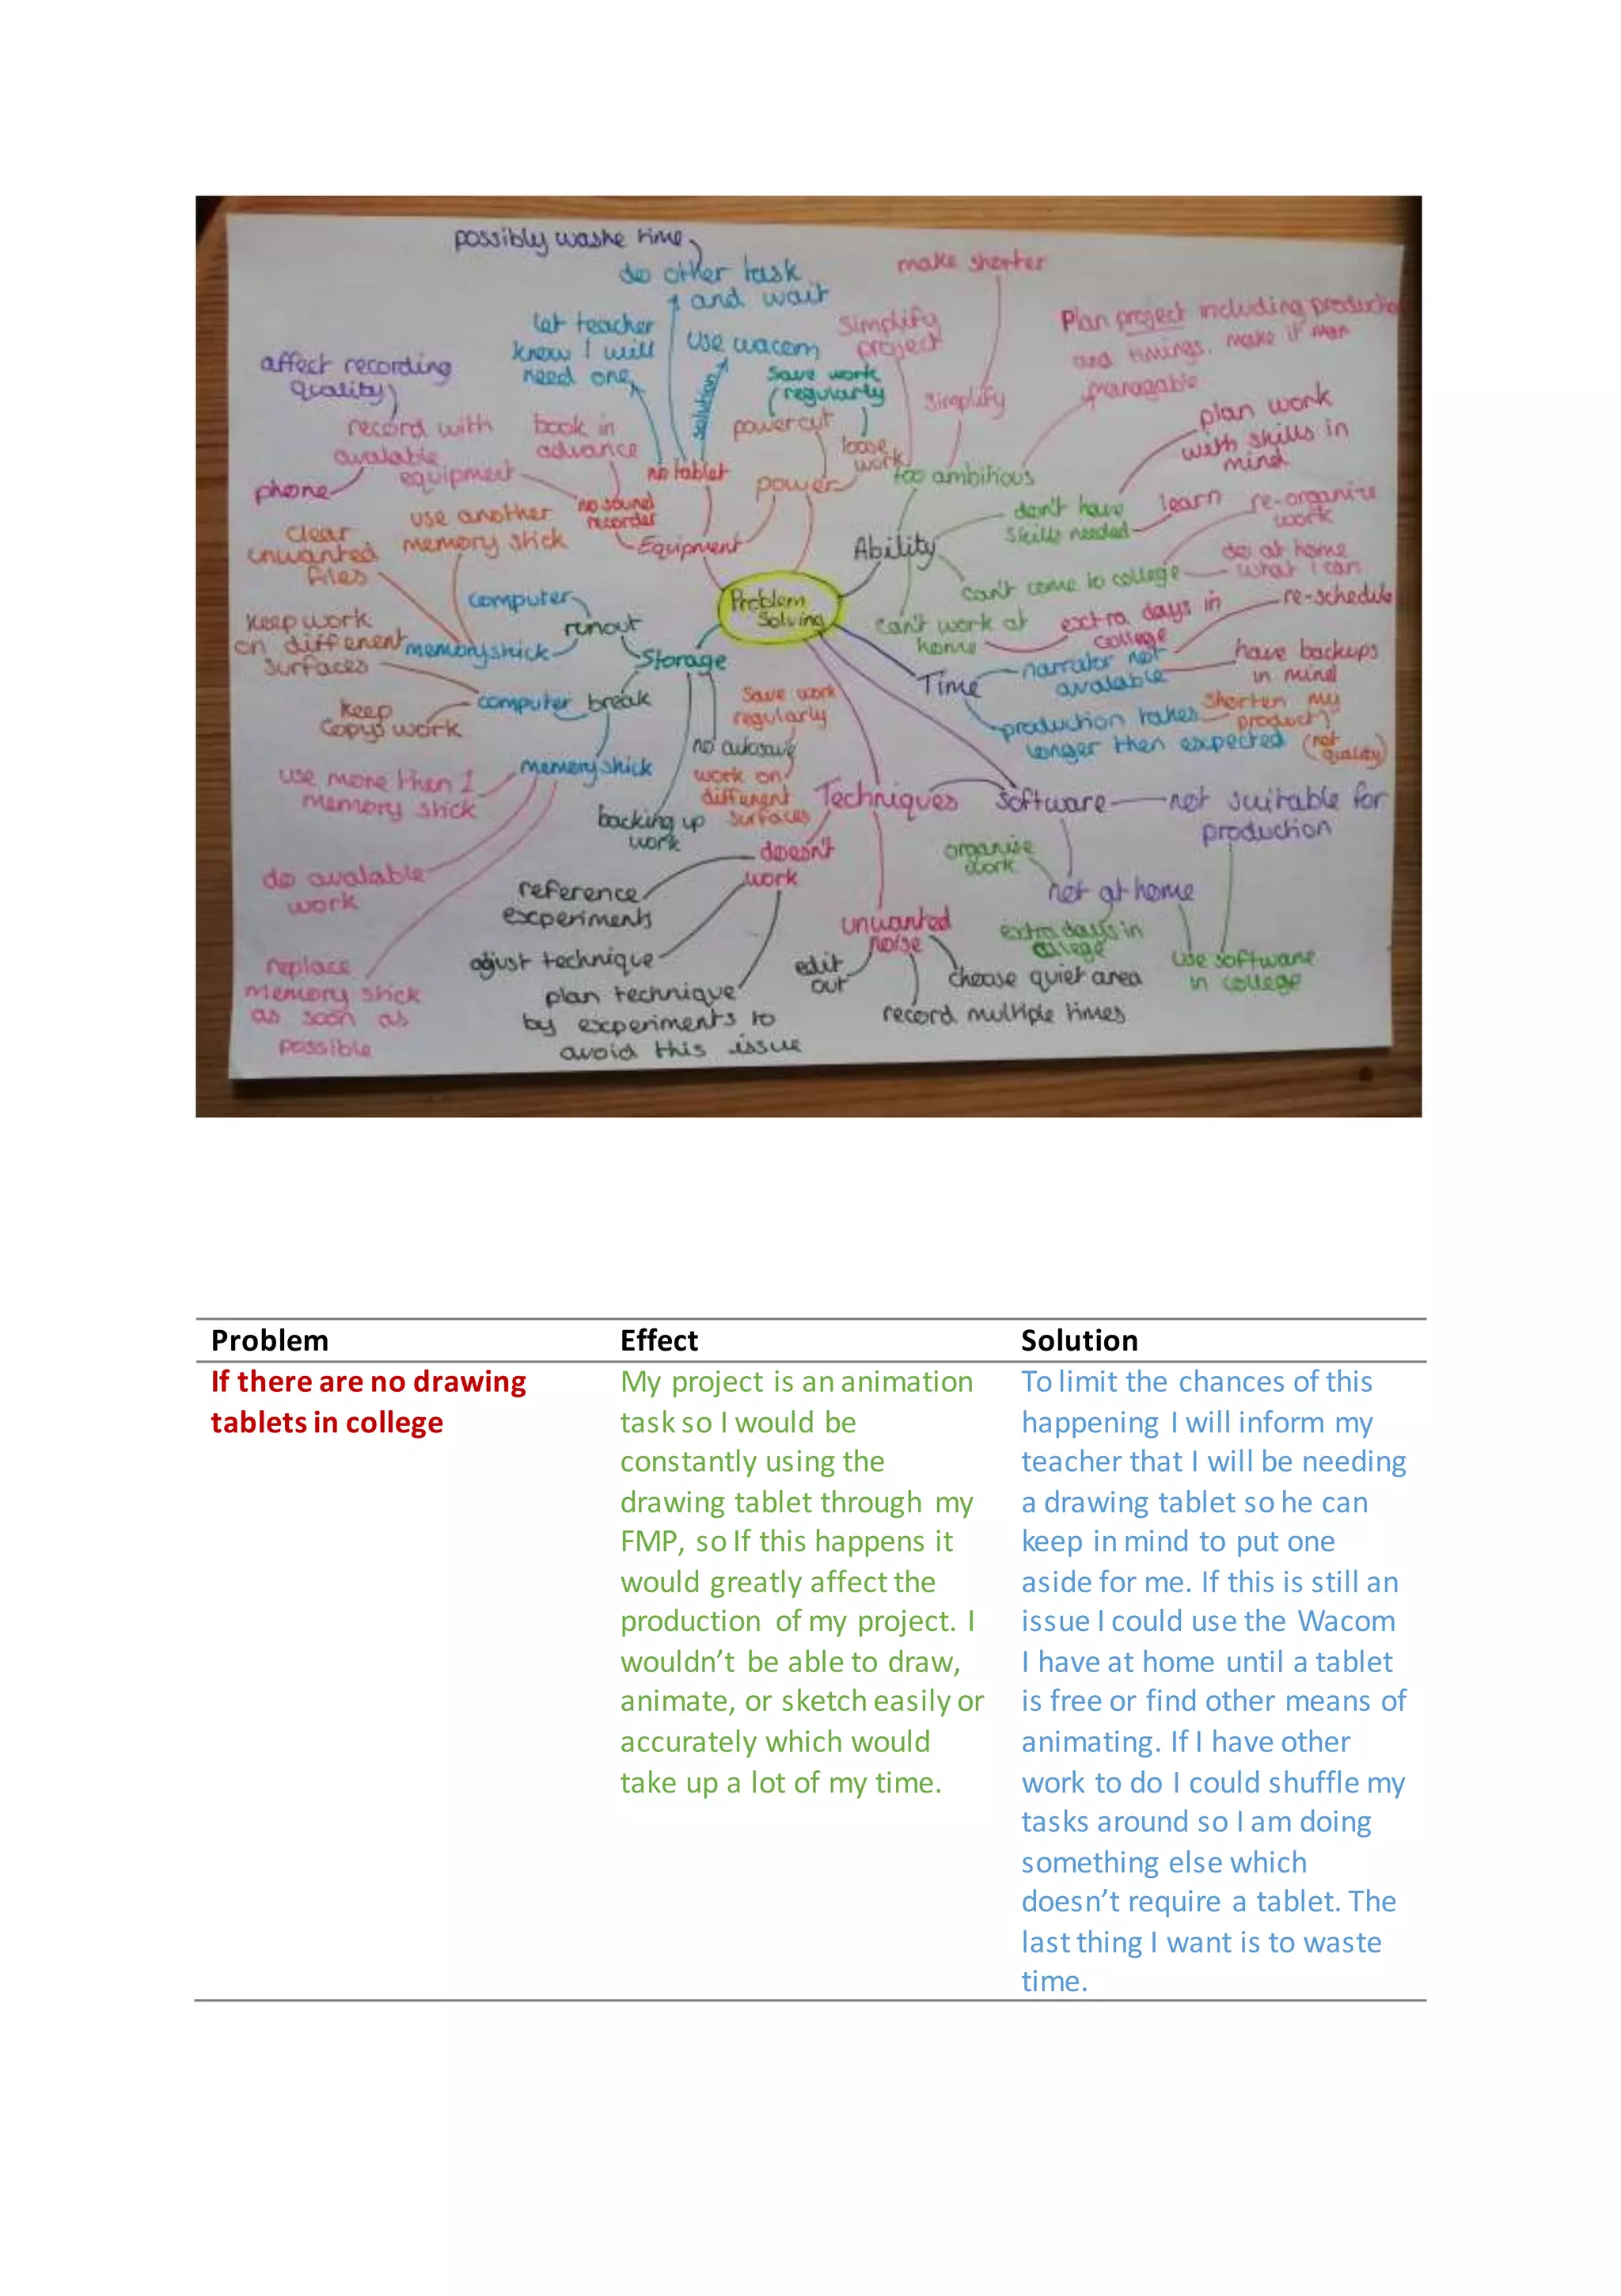 possibly waste time
do other task
and wait
let teacher
know I will
need one
use wacom
solution
make shorter
simplify
project
simplify
Plan project including production
and timings. make it
managable
affect recording
quality
record with
avalable
equipment
phone
book in
advance
no tablet
no sound
recorder
Equipment
save work
regularly
powercut
loose
work
power
too ambitious
plan work
with skills in
mind
don't have
skills needed
learn
re-organize
work
Ability
can't come to college
do at home
what I can
can't work at
home
extra days in
college
re-schedule
clear
unwanted
files
use another
memory stick
Problem
Solving
computer
runout
memorystick
Storage
keep work
on different
surfaces
computer break
keep
copys work
memorystick
use more then 1
memory stick
do avalable
work
replace
memory stick
as soon as
possible
Time
narrator not
avalable
have backups
in mind
production takes
longer then expected
shorten my
product
(not
quality)
save work
regularly
no autosave
work on
different
surfaces
backing up
work
Techniques
software
not suitable for
production
doesn't
work
reference
experiments
adjust technique
plan technique
by experiments to
avoid this issue
unwanted
noise
edit
out
choose quiet area
record multiple times
organise
work
not at home
extra days in
college
use software
in college
Problem Effect Solution
If there are no drawing
tablets in college
My project is an animation
task so I would be
constantly using the
drawing tablet through my
FMP, so If this happens it
would greatly affect the
production of my project. I
wouldn’t be able to draw,
animate, or sketch easily or
accurately which would
take up a lot of my time.
To limit the chances of this
happening I will inform my
teacher that I will be needing
a drawing tablet so he can
keep in mind to put one
aside for me. If this is still an
issue I could use the Wacom
I have at home until a tablet
is free or find other means of
animating. If I have other
work to do I could shuffle my
tasks around so I am doing
something else which
doesn’t require a tablet. The
last thing I want is to waste
time.